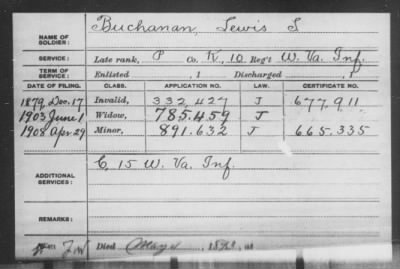 NAME OF SOLDIER: Buchanan, Lewis S
SERVICE: Late rank, P Co. K, 10 Reg't W. Va. Inf.
TERM OF SERVICE: Enlisted , 1 Discharged , 1
DATE OF FILING. CLASS. APPLICATION NO. LAW. CERTIFICATE NO.
1879, Dec. 17 Invalid, 332,427 J 677,911
1903 June 1 Widow, 785,459 J
1908 Apr. 29 Minor, 891,632 J 665,335
ADDITIONAL SERVICES: C, 15 W. Va. Inf.
REMARKS:
Died May